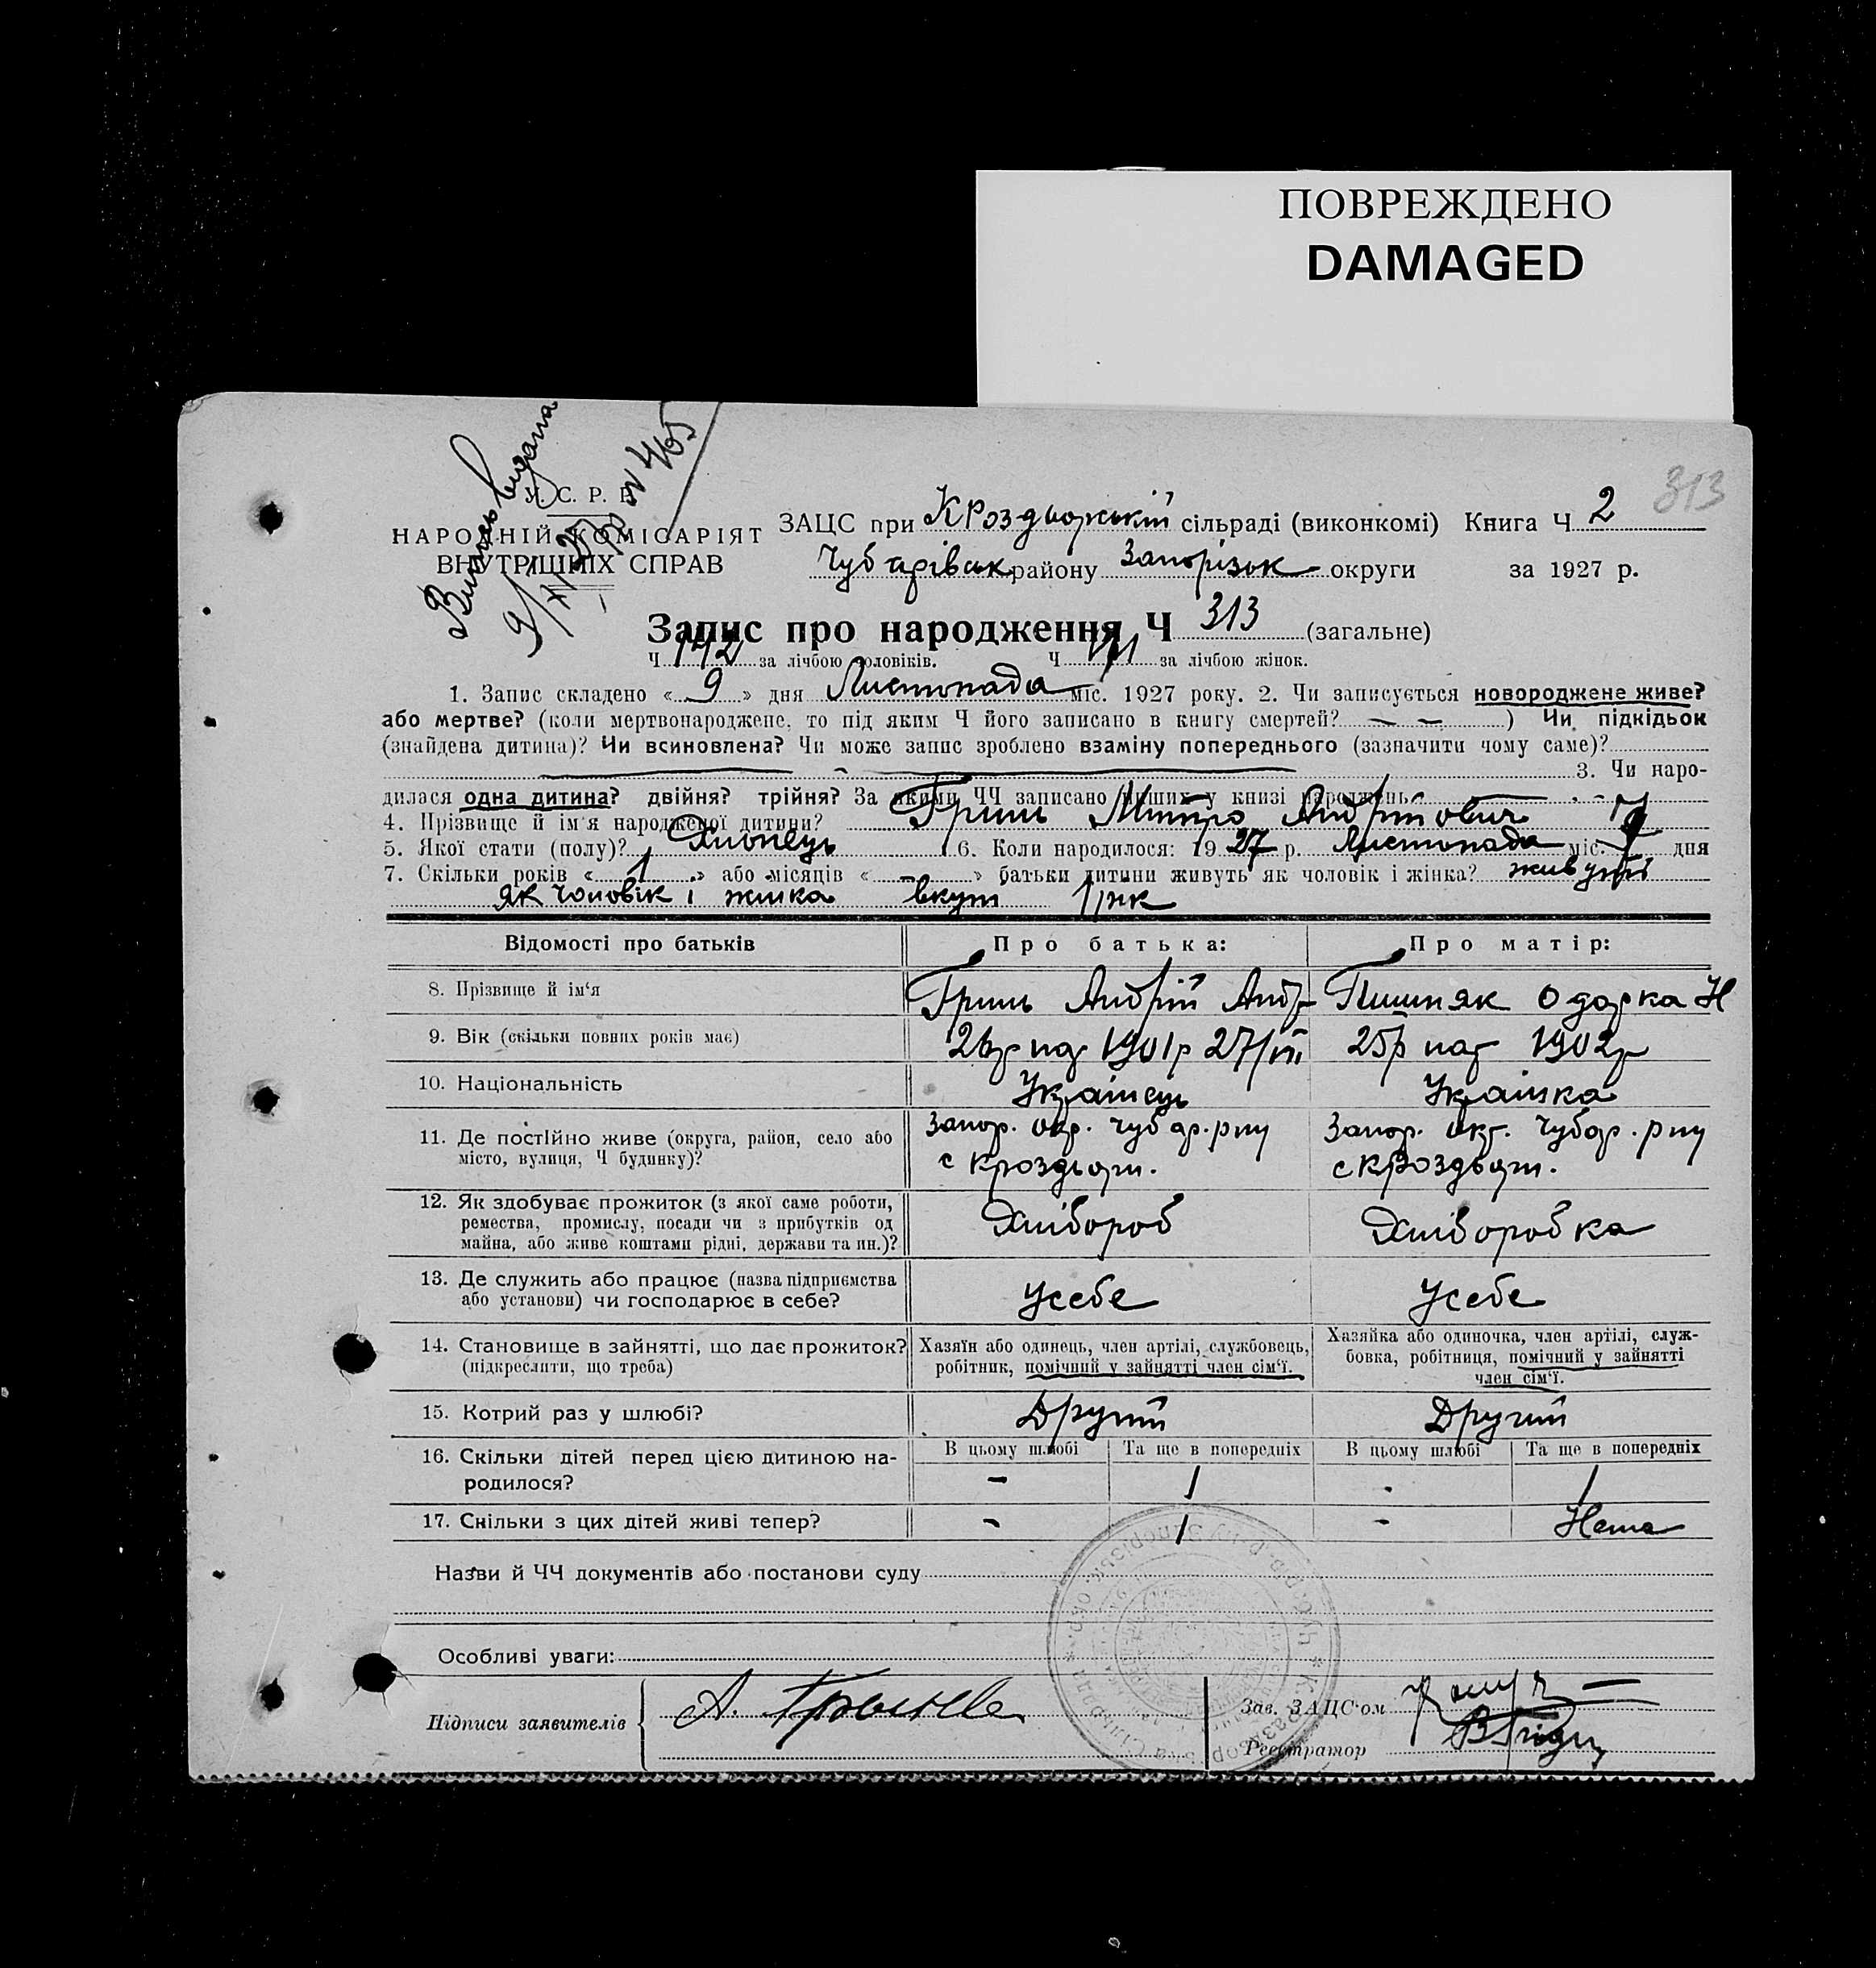 ПОВРЕЖДЕНО
DAMAGED
313
Витяг видана
9/XI 27 р N 465
У. С. Р. Р.
НАРОДНІЙ КОМІСАРІЯТ
ВНУТРІШНІХ СПРАВ
ЗАЦС при КРоздьорській сільраді (виконкомі) Книга Ч. 2
Чубарівськ району Запорізьк округи за 1927 р.
Запис про народження Ч 313 (загальне)
Ч 142 за лічбою чоловіків. Ч 171 за лічбою жінок.
1. Запис складено « 9 » дня Листопада міс. 1927 року. 2. Чи записується новороджене живе?
або мертве? (коли мертвонароджене, то під яким Ч його записано в книгу смертей? — — ) Чи підкідьок
(знайдена дитина)? Чи всиновлена? Чи може запис зроблено взаміну попереднього (зазначити чому саме)?
3. Чи наро-
дилася одна дитина? двійня? трійня? За якими ЧЧ записано инших у книзі народжень
4. Прізвище й ім'я народженої дитини? Гринь Митро Андрійович
5. Якої статі (полу)? Хлопець 6. Коли народилося: 1927 р. Листопада міс. 7 дня
7. Скільки років « 1 » або місяців « - » батьки дитини живуть як чоловік і жінка? живуть
як чоловік і жинка вкуп 1 рік
Відомості про батьків Про батька: Про матір:
8. Прізвище й ім'я Гринь Андрій Андр Пишняк Одарка Н
9. Вік (скільки повних років має) 26р нар 1901р 27/VII 25р нар 1902р
10. Національність Українець Українка
11. Де постійно живе (округа, район, село або місто, вулиця, Ч будинку)? Запор. окр. Чубар. рну Запор. окр. Чубар. рну
с Кроздьори. с КРоздьори.
12. Як здобуває прожиток (з якої саме роботи, ремества, промислу, посади чи з прибутків од майна, або живе коштами рідні, держави та ин.)? Хлібороб Хліборобка
13. Де служить або працює (назва підприємства або установи) чи господарює в себе? Усебе Усебе
14. Становище в зайнятті, що дає прожиток? (підкреслити, що треба) Хазяїн або одинець, член артілі, службовець, робітник, помічний у зайнятті член сім'ї. Хазяйка або одиночка, член артілі, служ-
бовка, робітниця, помічний у зайнятті
член сім'ї.
15. Котрий раз у шлюбі? Другий Другий
16. Скільки дітей перед цією дитиною на-
родилося? В цьому шлюбі Та ще в попередніх В цьому шлюбі Та ще в попередніх
- 1 - 1
17. Скільки з цих дітей живі тепер? - 1 - Нема
Назви й ЧЧ документів або постанови суду
Особливі уваги:
Підписи заявителів А.
Зав. ЗАЦС'ом
Реєстратор